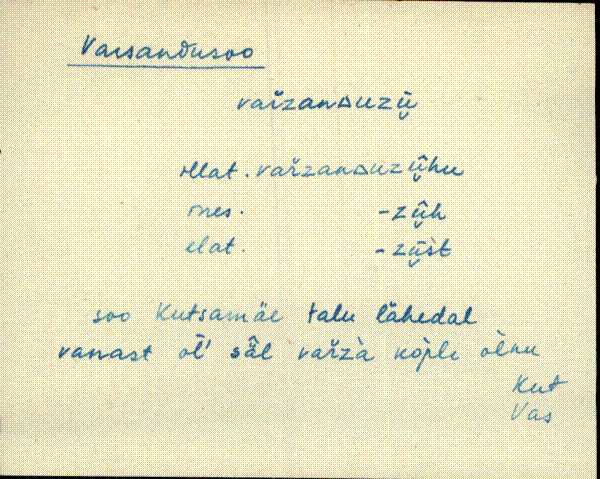 Varsandusoo
vařzanᴅuzū̬
illat. vařzanᴅuzū̬hu
ines. -zū̬h
elat. -zū̬śt
soo Kutsamäe talu lähedal
vanast oĺ' säl vařzà kõ̭ple olnu
Kut
Vas